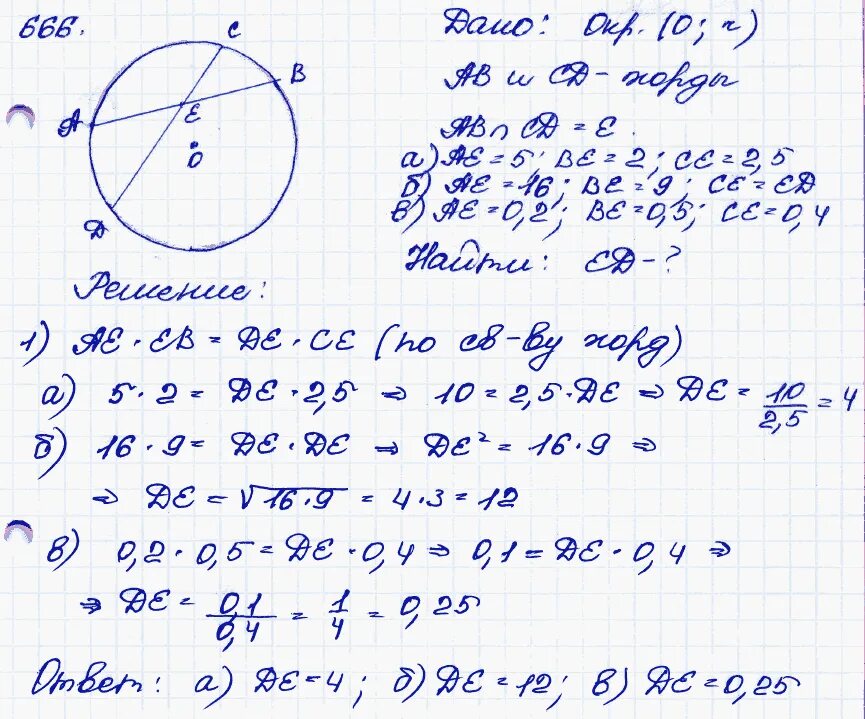 666.
C
B
A
E
O
D
Дано: Окр. (O; r)
AB и CD - хорды
AB ∩ CD = E.
а) AE = 5; BE = 2; CE = 2,5
б) AE = 16; BE = 9; CE = ED
в) AE = 0,2; BE = 0,5; CE = 0,4
Найти: ED - ?
Решение:
1) AE · EB = DE · CE (по св-ву хорд)
а) 5 · 2 = DE · 2,5 ⇒ 10 = 2,5 · DE ⇒ DE = 10/2,5 = 4
б) 16 · 9 = DE · DE ⇒ DE² = 16 · 9 ⇒
⇒ DE = √16 · 9 = 4 · 3 = 12
в) 0,2 · 0,5 = DE · 0,4 ⇒ 0,1 = DE · 0,4 ⇒
⇒ DE = 0,1/0,4 = 1/4 = 0,25
Ответ: а) DE = 4; б) DE = 12; в) DE = 0,25